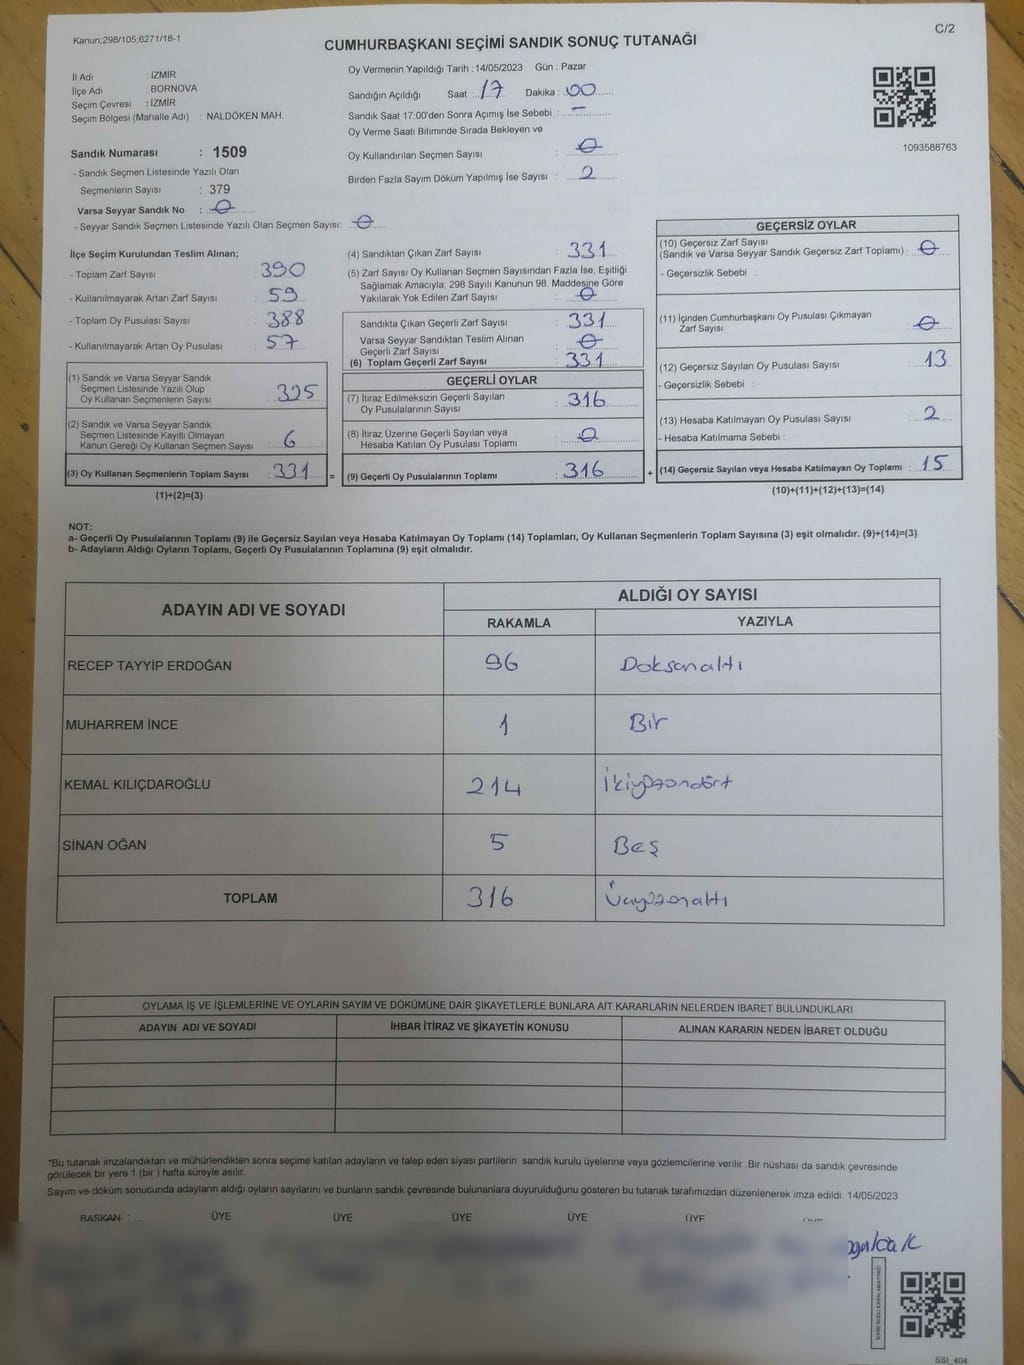 Kanun;298/105;6271/18-1
C/2
CUMHURBAŞKANI SEÇİMİ SANDIK SONUÇ TUTANAĞI
İl Adı : İZMİR
İlçe Adı : BORNOVA
Seçim Çevresi : İZMİR
Seçim Bölgesi (Mahalle Adı) : NALDÖKEN MAH.
Oy Vermenin Yapıldığı Tarih : 14/05/2023 Gün : Pazar
Sandığın Açıldığı Saat : 17 Dakika : 00
Sandık Saat 17:00'den Sonra Açımış İse Sebebi : -
Oy Verme Saati Bitiminde Sırada Bekleyen ve
Oy Kullandırılan Seçmen Sayısı : 0
Birden Fazla Sayım Döküm Yapılmış İse Sayısı : 2
1093588763
Sandık Numarası : 1509
- Sandık Seçmen Listesinde Yazılı Olan
Seçmenlerin Sayısı : 379
Varsa Seyyar Sandık No : 0
- Seyyar Sandık Seçmen Listesinde Yazılı Olan Seçmen Sayısı: 0
İlçe Seçim Kurulundan Teslim Alınan;
- Toplam Zarf Sayısı : 390
- Kullanılmayarak Artan Zarf Sayısı : 59
- Toplam Oy Pusulası Sayısı : 388
- Kullanılmayarak Artan Oy Pusulası : 57
(1) Sandık ve Varsa Seyyar Sandık
Seçmen Listesinde Yazılı Olup
Oy Kullanan Seçmenlerin Sayısı : 325
(2) Sandık ve Varsa Seyyar Sandık
Seçmen Listesinde Kayıtlı Olmayan
Kanun Gereği Oy Kullanan Seçmen Sayısı : 6
(3) Oy Kullanan Seçmenlerin Toplam Sayısı : 331 =
(1)+(2)=(3)
(4) Sandıktan Çıkan Zarf Sayısı : 331
(5) Zarf Sayısı Oy Kullanan Seçmen Sayısından Fazla İse, Eşitliği
Sağlamak Amacıyla; 298 Sayılı Kanunun 98. Maddesine Göre
Yakılarak Yok Edilen Zarf Sayısı : 0
Sandıkta Çıkan Geçerli Zarf Sayısı : 331
Varsa Seyyar Sandıktan Teslim Alınan
Geçerli Zarf Sayısı : 0
(6) Toplam Geçerli Zarf Sayısı : 331
GEÇERLİ OYLAR
(7) İtiraz Edilmeksizin Geçerli Sayılan
Oy Pusulalarının Sayısı : 316
(8) İtiraz Üzerine Geçerli Sayılan veya
Hesaba Katılan Oy Pusulası Toplamı : 0
(9) Geçerli Oy Pusulalarının Toplamı : 316 +
GEÇERSİZ OYLAR
(10) Geçersiz Zarf Sayısı
(Sandık ve Varsa Seyyar Sandık Geçersiz Zarf Toplamı) : 0
- Geçersizlik Sebebi :
(11) İçinden Cumhurbaşkanı Oy Pusulası Çıkmayan
Zarf Sayısı : 0
(12) Geçersiz Sayılan Oy Pusulası Sayısı : 13
- Geçersizlik Sebebi :
(13) Hesaba Katılmayan Oy Pusulası Sayısı : 2
- Hesaba Katılmama Sebebi :
(14) Geçersiz Sayılan veya Hesaba Katılmayan Oy Toplamı : 15
(10)+(11)+(12)+(13)=(14)
NOT:
a- Geçerli Oy Pusulalarının Toplamı (9) ile Geçersiz Sayılan veya Hesaba Katılmayan Oy Toplamı (14) Toplamları, Oy Kullanan Seçmenlerin Toplam Sayısına (3) eşit olmalıdır. (9)+(14)=(3)
b- Adayların Aldığı Oyların Toplamı, Geçerli Oy Pusulalarının Toplamına (9) eşit olmalıdır.
ADAYIN ADI VE SOYADI ALDIĞI OY SAYISI
RAKAMLA YAZIYLA
RECEP TAYYİP ERDOĞAN 96 Doksanaltı
MUHARREM İNCE 1 Bir
KEMAL KILIÇDAROĞLU 214 İkiyüzondört
SİNAN OĞAN 5 Beş
TOPLAM 316 Üçyüzonaltı
OYLAMA İŞ VE İŞLEMLERİNE VE OYLARIN SAYIM VE DÖKÜMÜNE DAİR ŞİKAYETLERLE BUNLARA AİT KARARLARIN NELERDEN İBARET BULUNDUKLARI
ADAYIN ADI VE SOYADI İHBAR İTİRAZ VE ŞİKAYETİN KONUSU ALINAN KARARIN NEDEN İBARET OLDUĞU
*Bu tutanak imzalandıktan ve mühürlendikten sonra seçime katılan adayların ve talep eden siyasi partilerin sandık kurulu üyelerine veya gözlemcilerine verilir .Bir nüshası da sandık çevresinde
görülecek bir yere 1 (bir ) hafta süreyle asılır.
Sayım ve döküm sonucunda adayların aldığı oyların sayılarını ve bunların sandık çevresinde bulunanlara duyurulduğunu gösteren bu tutanak tarafımızdan düzenlenerek imza edildi. 14/05/2023
BAŞKAN : ÜYE ÜYE ÜYE ÜYE ÜYE
SSI_404